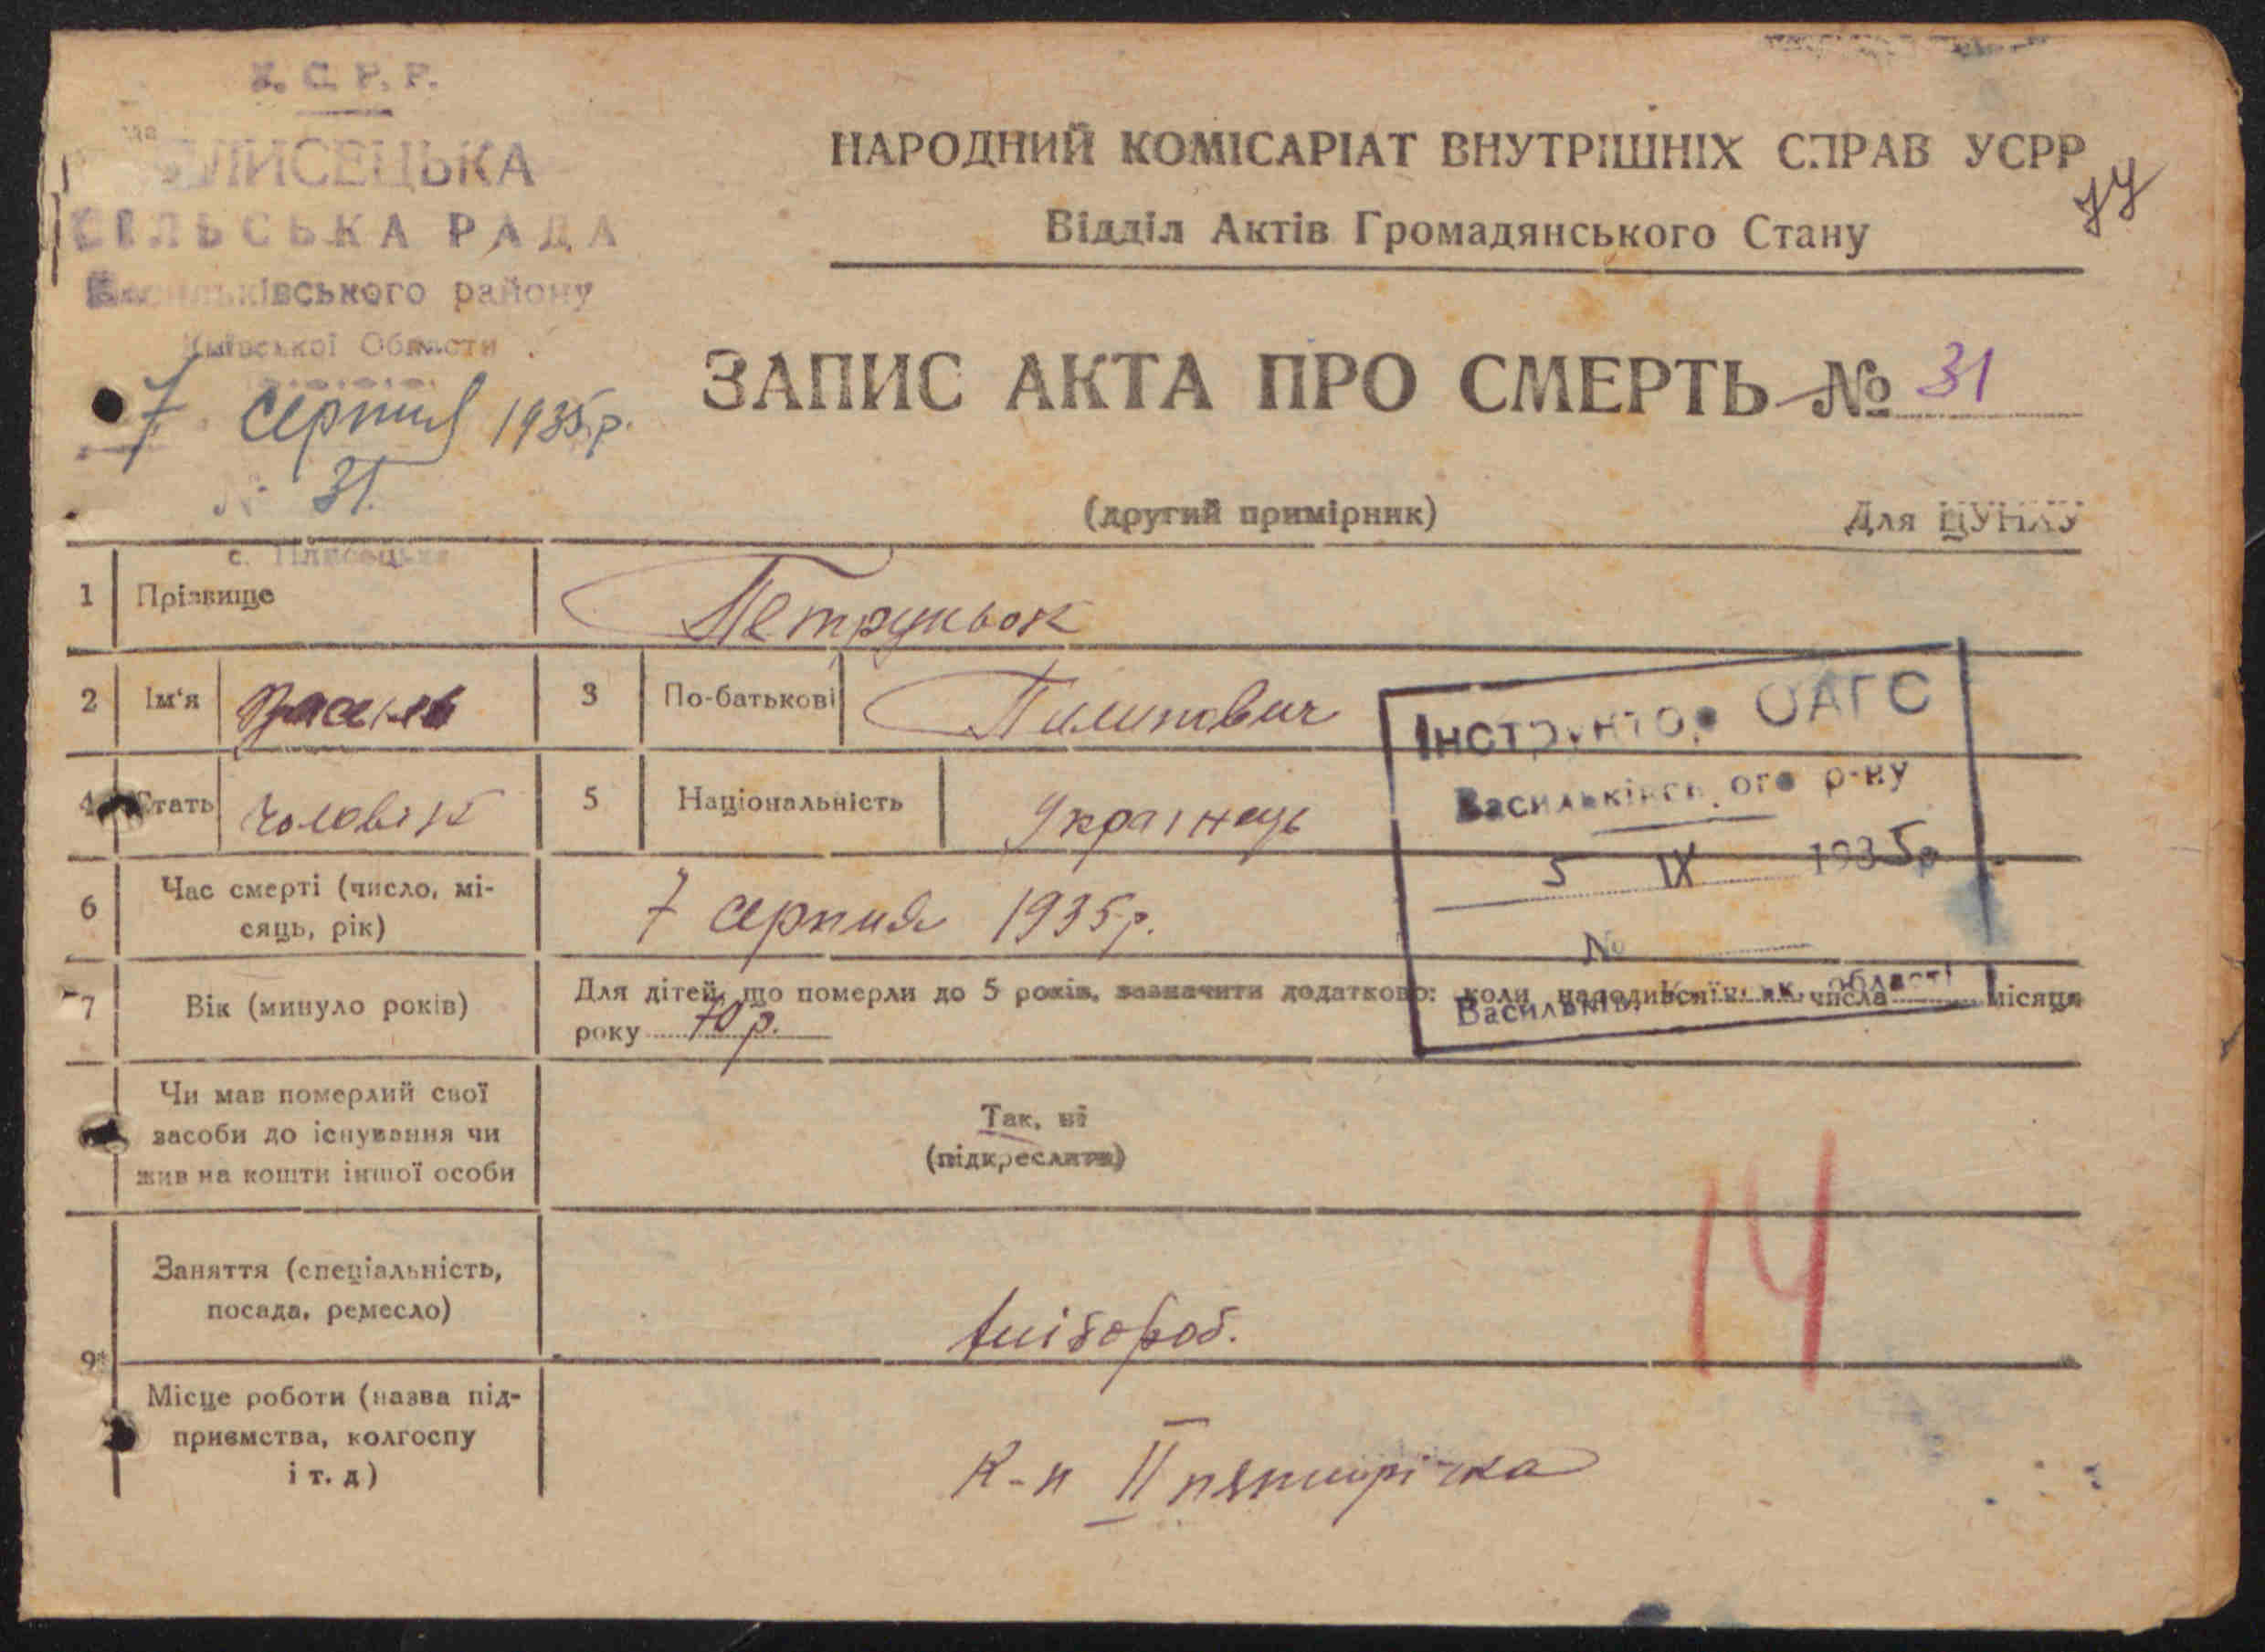 У. С. Р. Р.
ПЛИСЕЦЬКА
СІЛЬСЬКА РАДА
Васильківського району
Київської Области
7 серпня 1935 р.
№ 31.
с. Плисецьке
НАРОДНИЙ КОМІСАРІАТ ВНУТРІШНІХ СПРАВ УСРР
Відділ Актів Громадянського Стану
ЗАПИС АКТА ПРО СМЕРТЬ № 31
(другий примірник)
Для ЦУНХУ
1 Прізвище Петруньок
2 Ім'я Василь 3 По-батькові Пилипович
4 Стать Чоловік 5 Національність Українець
6 Час смерті (число, мі-
сяць, рік) 7 серпня 1935 р.
7 Вік (минуло років) Для дітей, що померли до 5 років, зазначити додатково: коли народився числа місяця
року 70 р.
Чи мав померлий свої
засоби до існування чи
жив на кошти іншої особи
Так, ні
(підкреслити)
9 Заняття (спеціальність,
посада, ремесло) хлібороб.
Місце роботи (назва під-
приємства, колгоспу
і т. д) К-п II пятирічка
Інструктор ОАГС
Васильківського р-ну
5 IX 1935 р
№
Васильків, Київськ. області
14